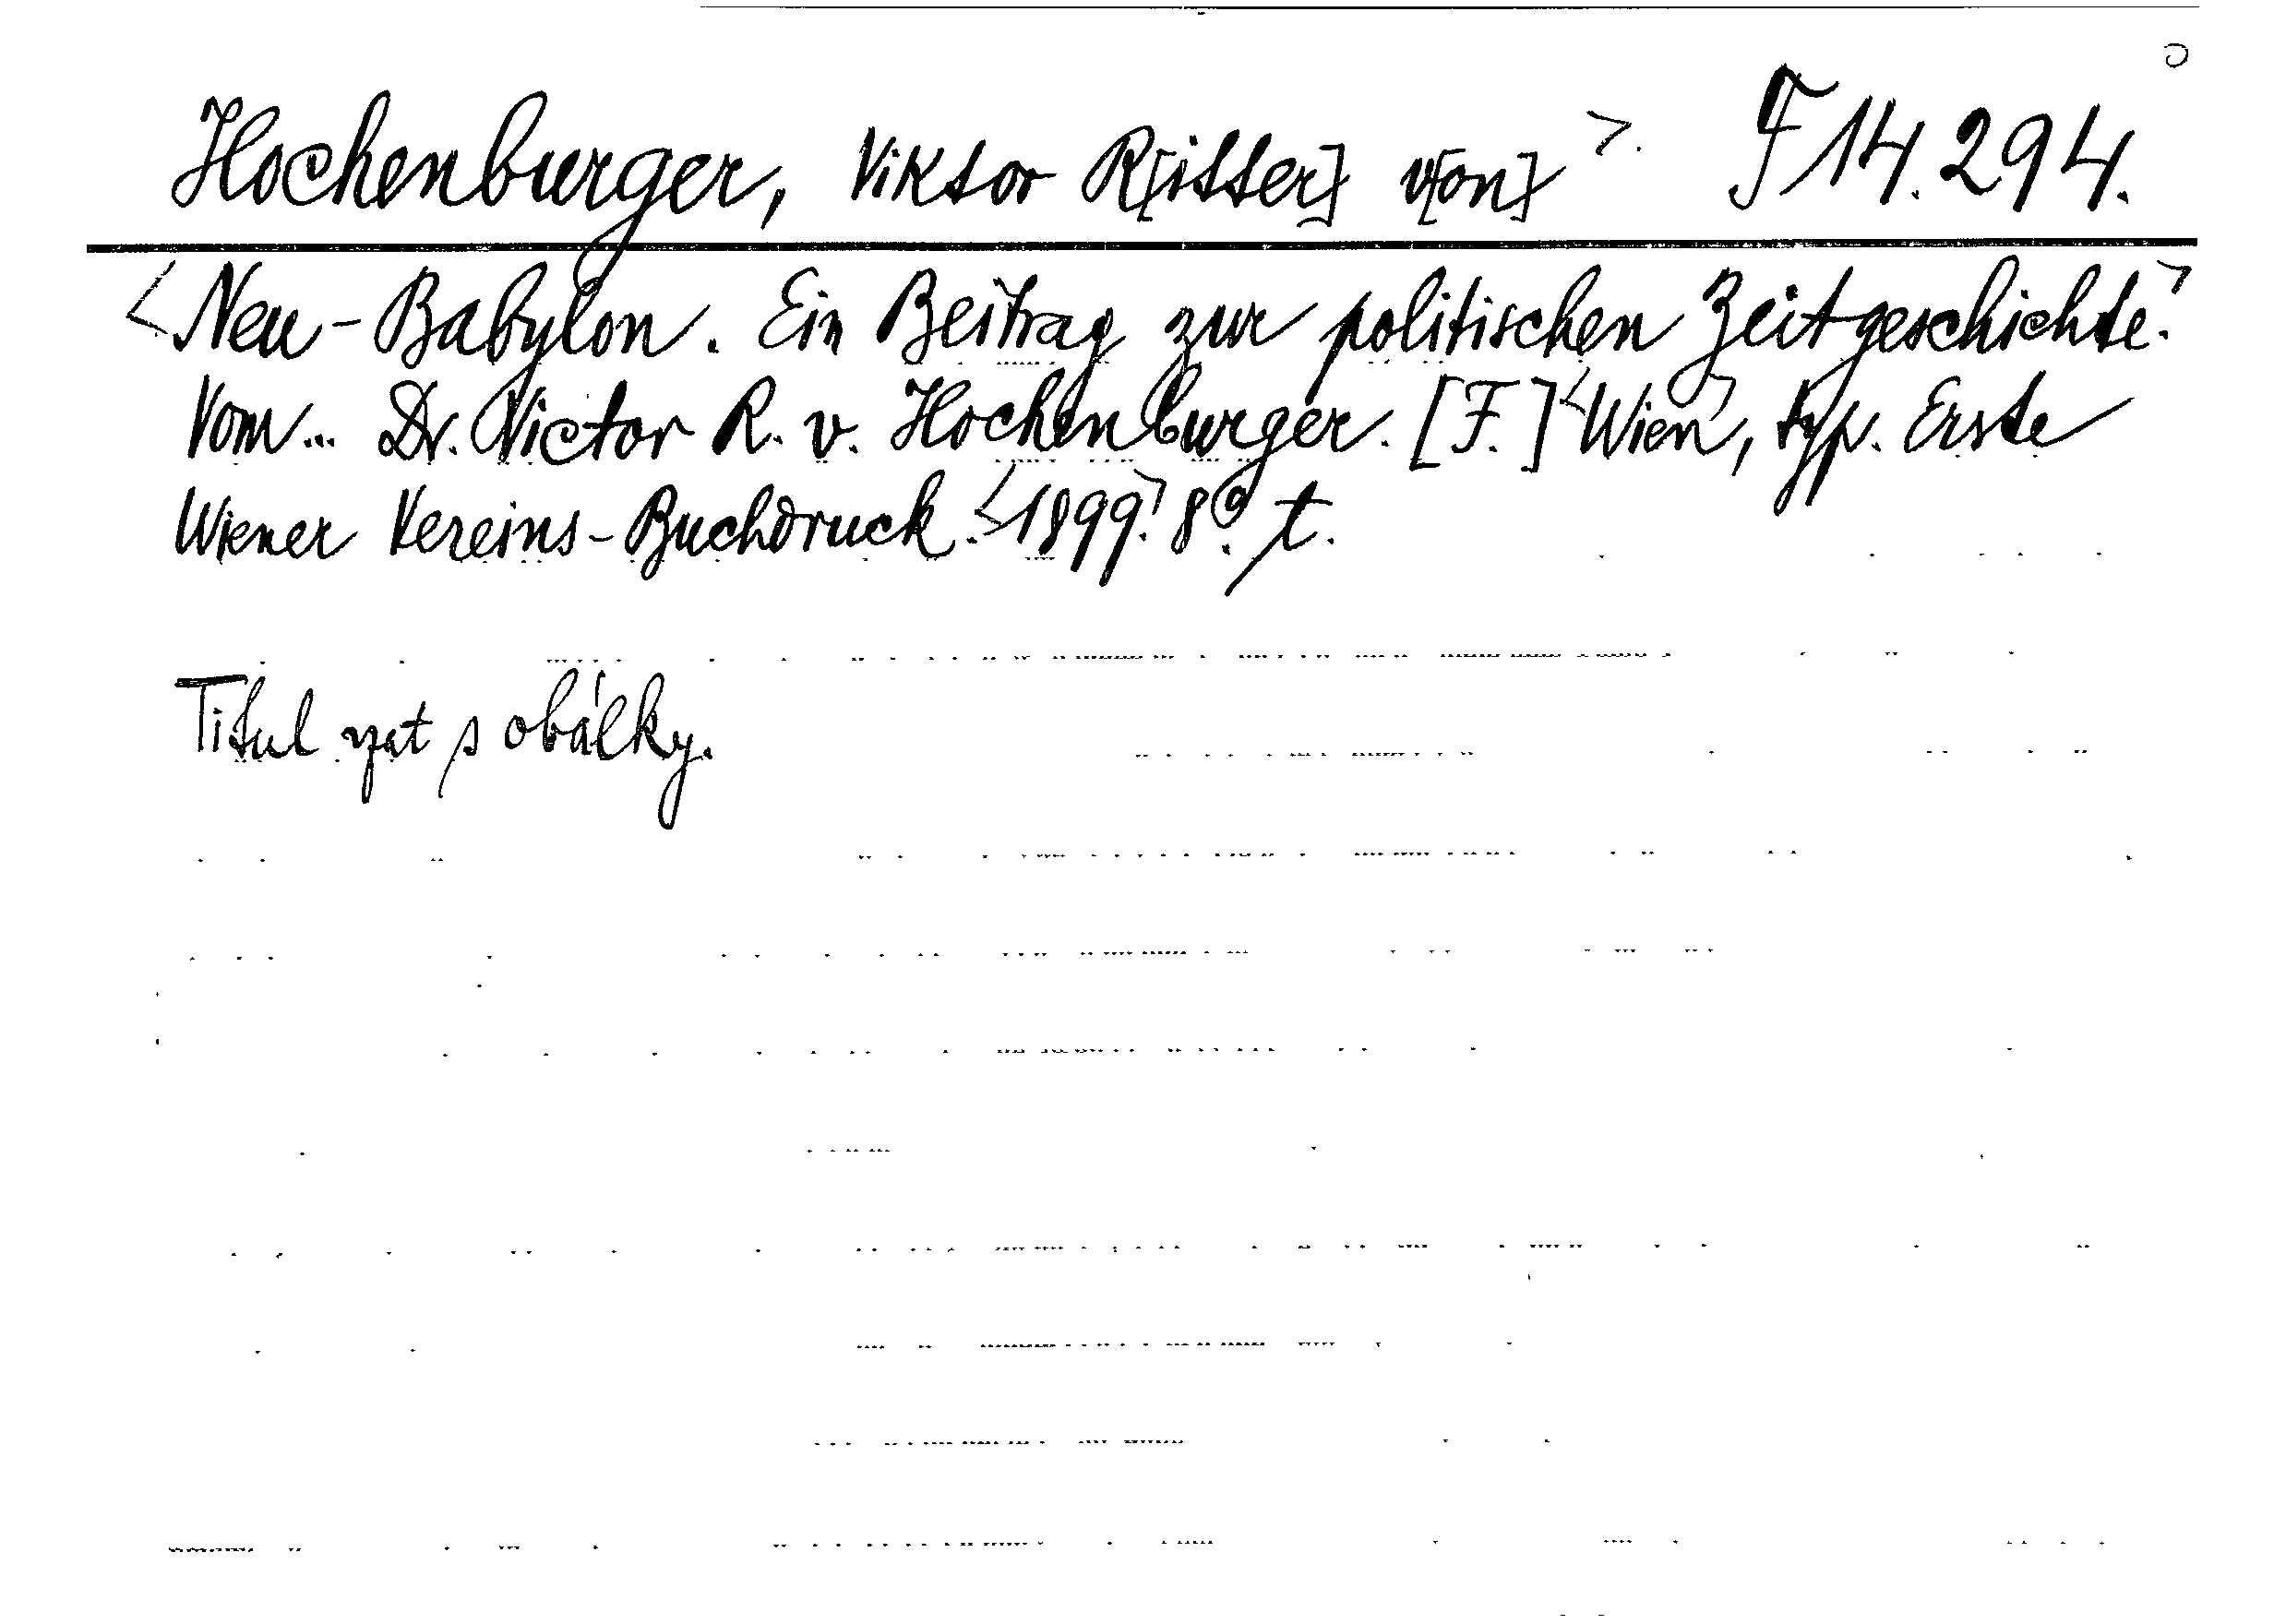 Hochenburger, Viktor R[itter] v[on] >. F 14.294.
<Neu-Babylon. Ein Beitrag zur politischen Zeitgeschichte.>
Vom... Dr. Victor R. v. Hochenburger. [F.] <Wien>, typ. Erste
Wiener Vereins-Buchdruck. <1899.> 8°. t.
Titul vzat s obálky.